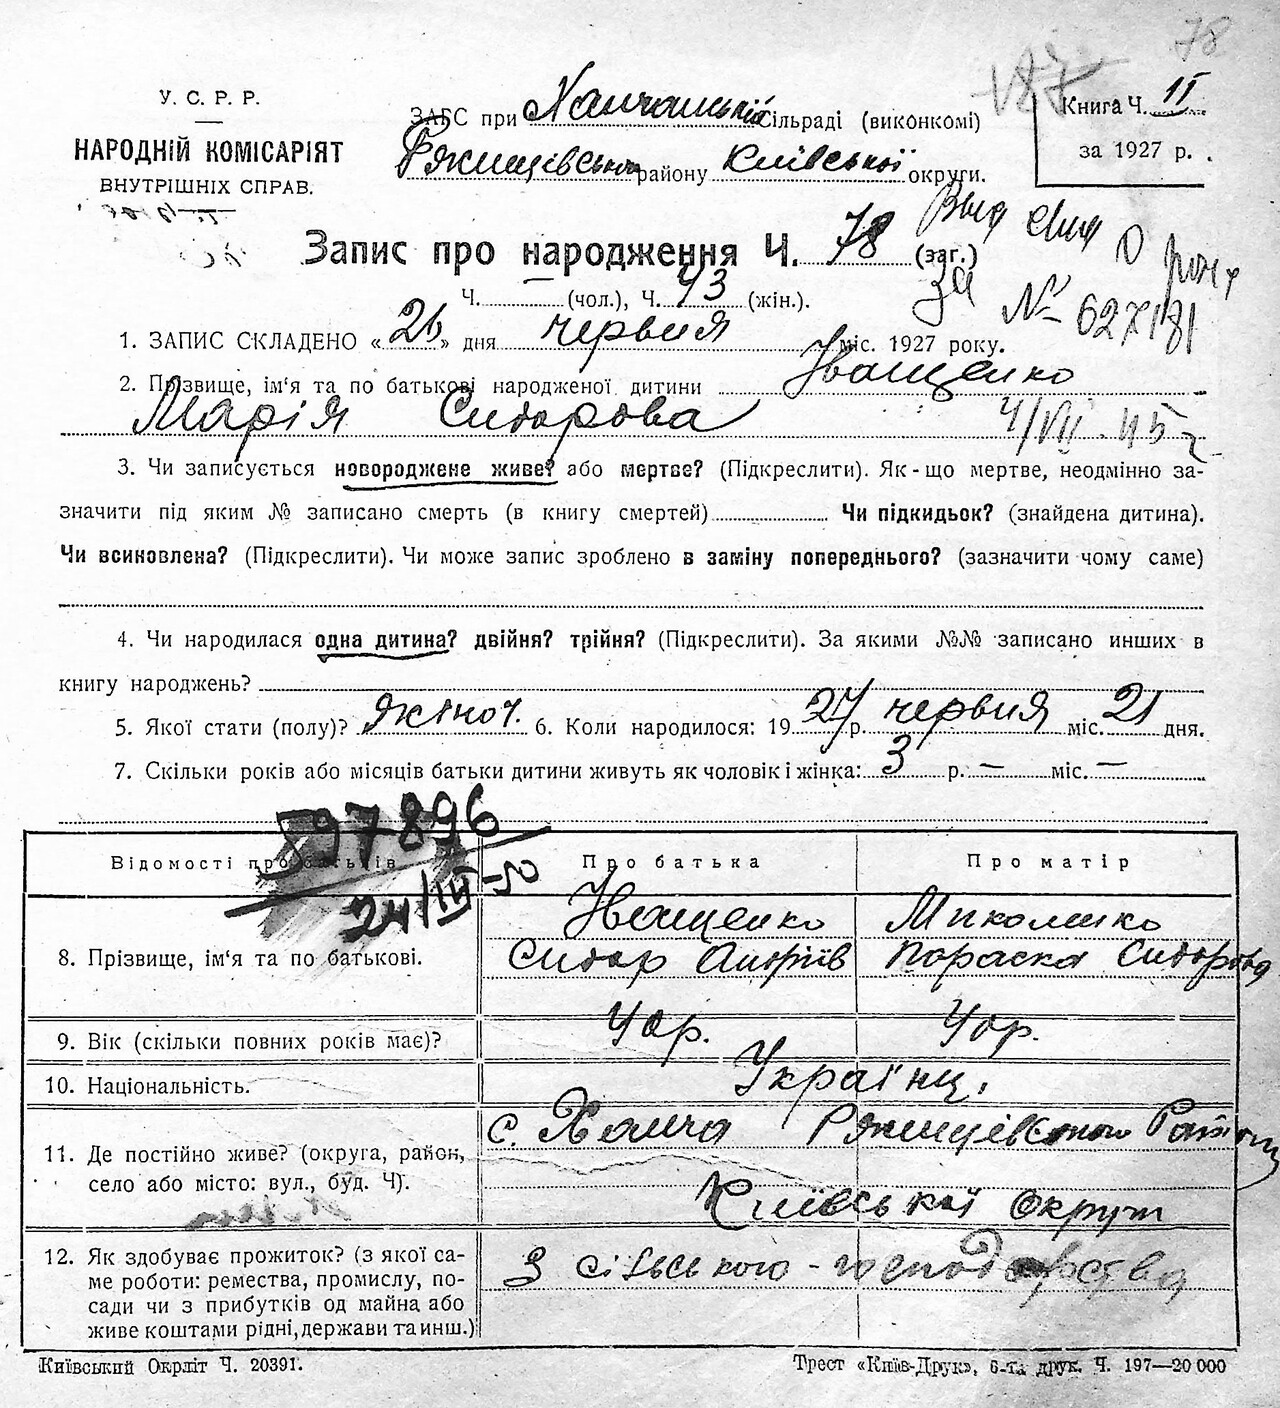 78
187
У. С. Р. Р.
НАРОДНІЙ КОМІСАРІЯТ
ВНУТРІШНІХ СПРАВ.
ЗАГС при Ханчанській Сільраді (виконкомі)
Ржищівського району Київської округи.
Книга Ч. II
за 1927 р.
Запис про народження Ч. 78 (заг.)
Ч. — (чол.), Ч. 43 (жін.).
за № 62
4/VII 45 г
1. ЗАПИС СКЛАДЕНО «26» дня червня міс. 1927 року.
2. Прізвище, ім'я та по батькові народженої дитини Іващенко
Марія Сидорова
3. Чи записується новороджене живе? або мертве? (Підкреслити). Як-що мертве, неодмінно за-
значити під яким № записано смерть (в книгу смертей) Чи підкидьок? (знайдена дитина).
Чи всиновлена? (Підкреслити). Чи може запис зроблено в заміну попереднього? (зазначити чому саме)
4. Чи народилася одна дитина? двійня? трійня? (Підкреслити). За якими №№ записано инших в
книгу народжень?
5. Якої стати (полу)? жіноч. 6. Коли народилося: 1927 р. червня міс. 21 дня.
7. Скільки років або місяців батьки дитини живуть як чоловік і жінка: 3 р. — міс. —
597896
24/III-50
Відомості про батьків Про батька Про матір
8. Прізвище, ім'я та по батькові. Іващенко Сидор Андріїв Миколенко Параска Сидорова
9. Вік (скільки повних років має)?
10. Національність. Українц.
11. Де постійно живе? (округа, район,
село або місто: вул., буд. Ч). с. Ханча Ржищівського Району
Київської Округи
12. Як здобуває прожиток? (з якої са-
ме роботи: ремества, промислу, по-
сади чи з прибутків од майна або
живе коштами рідні, держави та инш.) З сільського-господарства
Київський Окрліт Ч. 20391. Трест «Київ-Друк», 6-та друк. Ч. 197—20 000